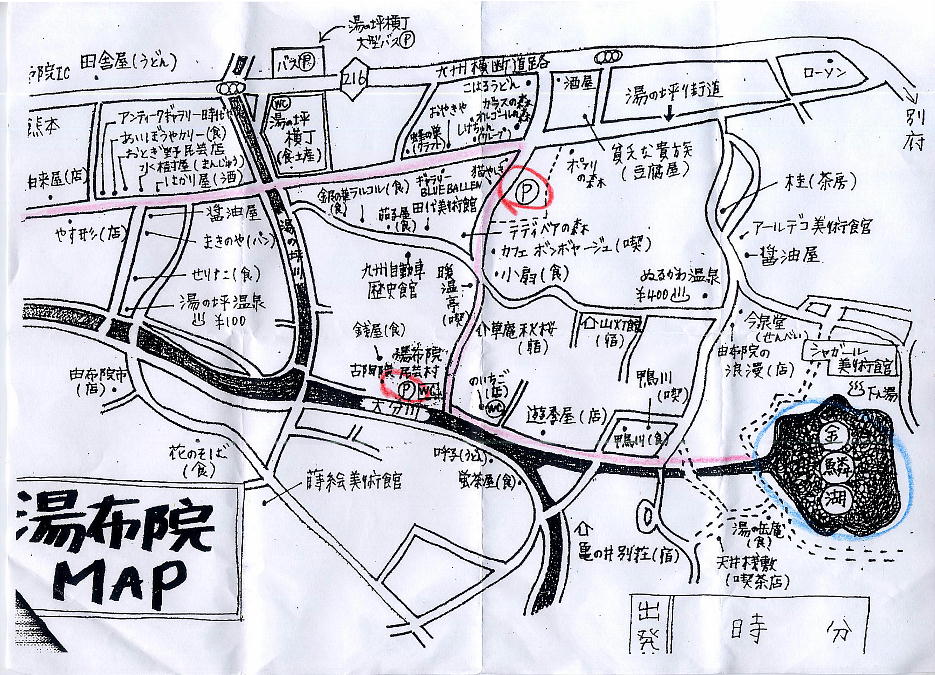 湯の坪横丁
大型バスⓅ
田舎屋(うどん)
バスⓅ
216
九州横断道路
酒屋
ローソン
湯の坪り街道
別府
熊本
WC
湯の坪
横丁
(食・土産)
こはるうどん
おやきや
ガラスの森
オルゴールの森
アンティークギャラリー時代や
あいぼうやカリー(食)
おとぎ野民芸店
水く植村屋(まんじゅう)
はかり屋(酒)
由来屋(店)
猫やしき
ギャラリー
BLUE BALLEN
田代美術館
茄子屋
(食)
Ⓟ
貧乏な貴族
(豆腐屋)
桂(茶房)
テディベアの森
カフェ ボンボヤージュ(喫)
小扇(食)
アールデコ美術館
醬油屋
醬油屋
まきのや(パン)
せりなこ(食)
湯の坪温泉
¥100
湯の坪川
九州自動車
歴史館
暖
温
亭
(喫)
ぬるかわ温泉
¥400
草庵秋桜
(宿)
山灯館
(宿)
今泉堂
(せんべい)
由布院の
浪漫(店)
シャガール
美術館
下ん湯
由布院市
(店)
湯布院
民芸村
Ⓟ
WC
大分川
のいちご
(店)
WC
鴨川
(喫)
遊季屋(店)
鴨川(食)
金
鱗
湖
花のそば
(食)
蒔絵美術館
蛍茶屋(食)
亀の井別荘(宿)
湯の岳庵
(食)
天井棧敷
(喫茶店)
湯布院
MAP
出発
時 分